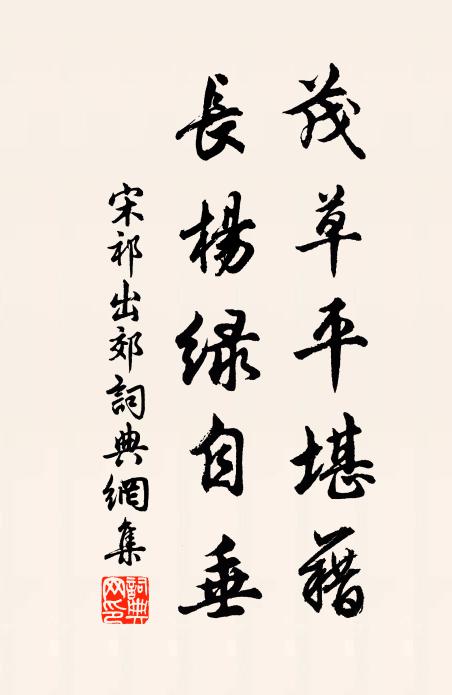 茂草平堪藉
長楊緑自垂
宋祁出郊詞典網集
詞典網印